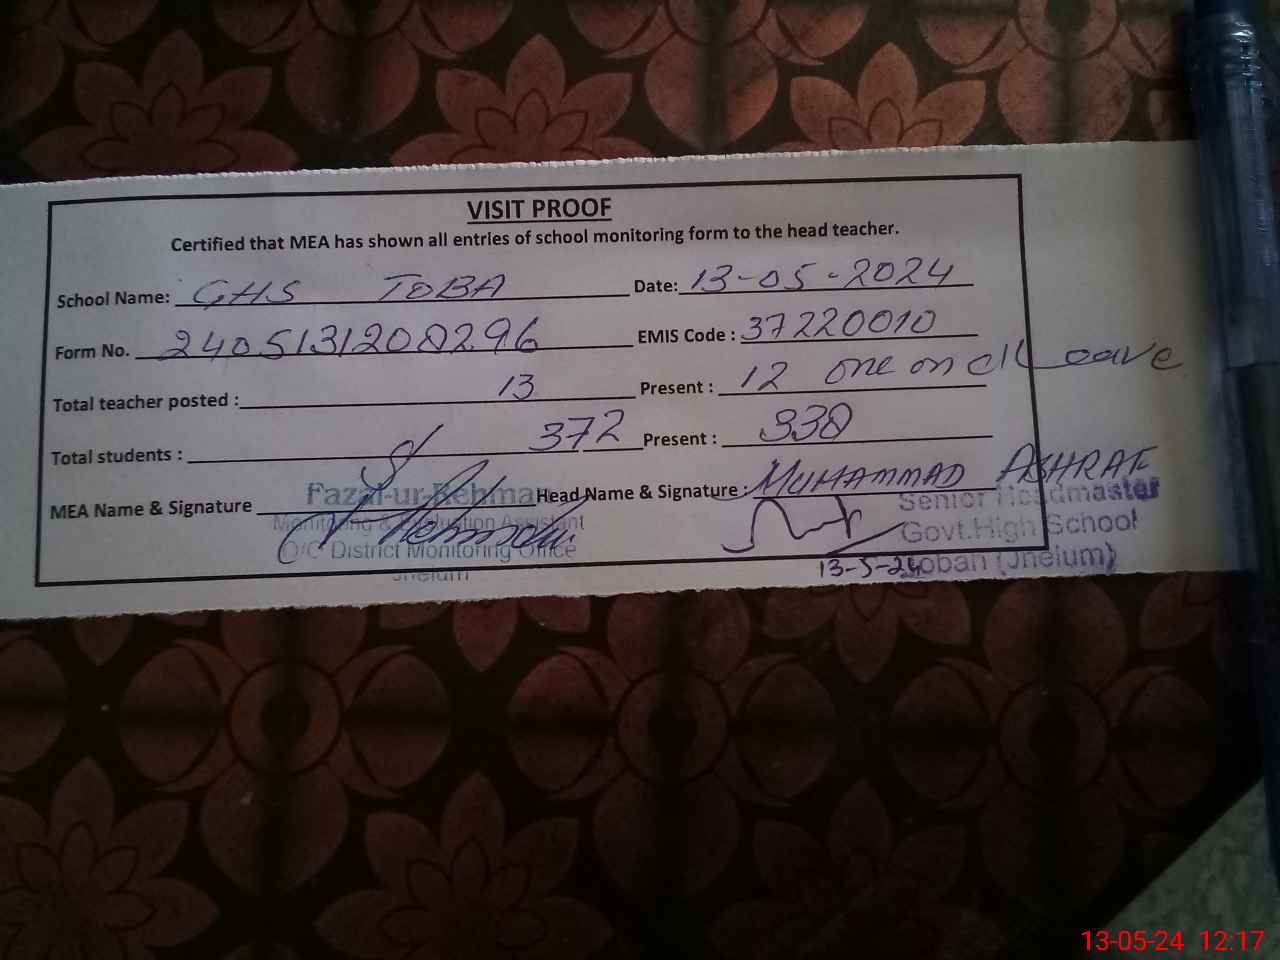 VISIT PROOF
Certified that MEA has shown all entries of school monitoring form to the head teacher.
School Name: GHS TOBA Date: 13-05-2024
Form No. 2405131208296 EMIS Code : 37220010
Total teacher posted : 13 Present : 12 one on Leave
Total students : 372 Present : 338
MEA Name & Signature Head Name & Signature : MUHAMMAD ASHRAF
Fazal-ur-Rehman
Monitoring & Evaluation Assistant
O/C District Monitoring Office
Jhelum
Senior Headmaster
Govt.High School
Tobah (Jhelum)
13-5-24
13-05-24 12:17